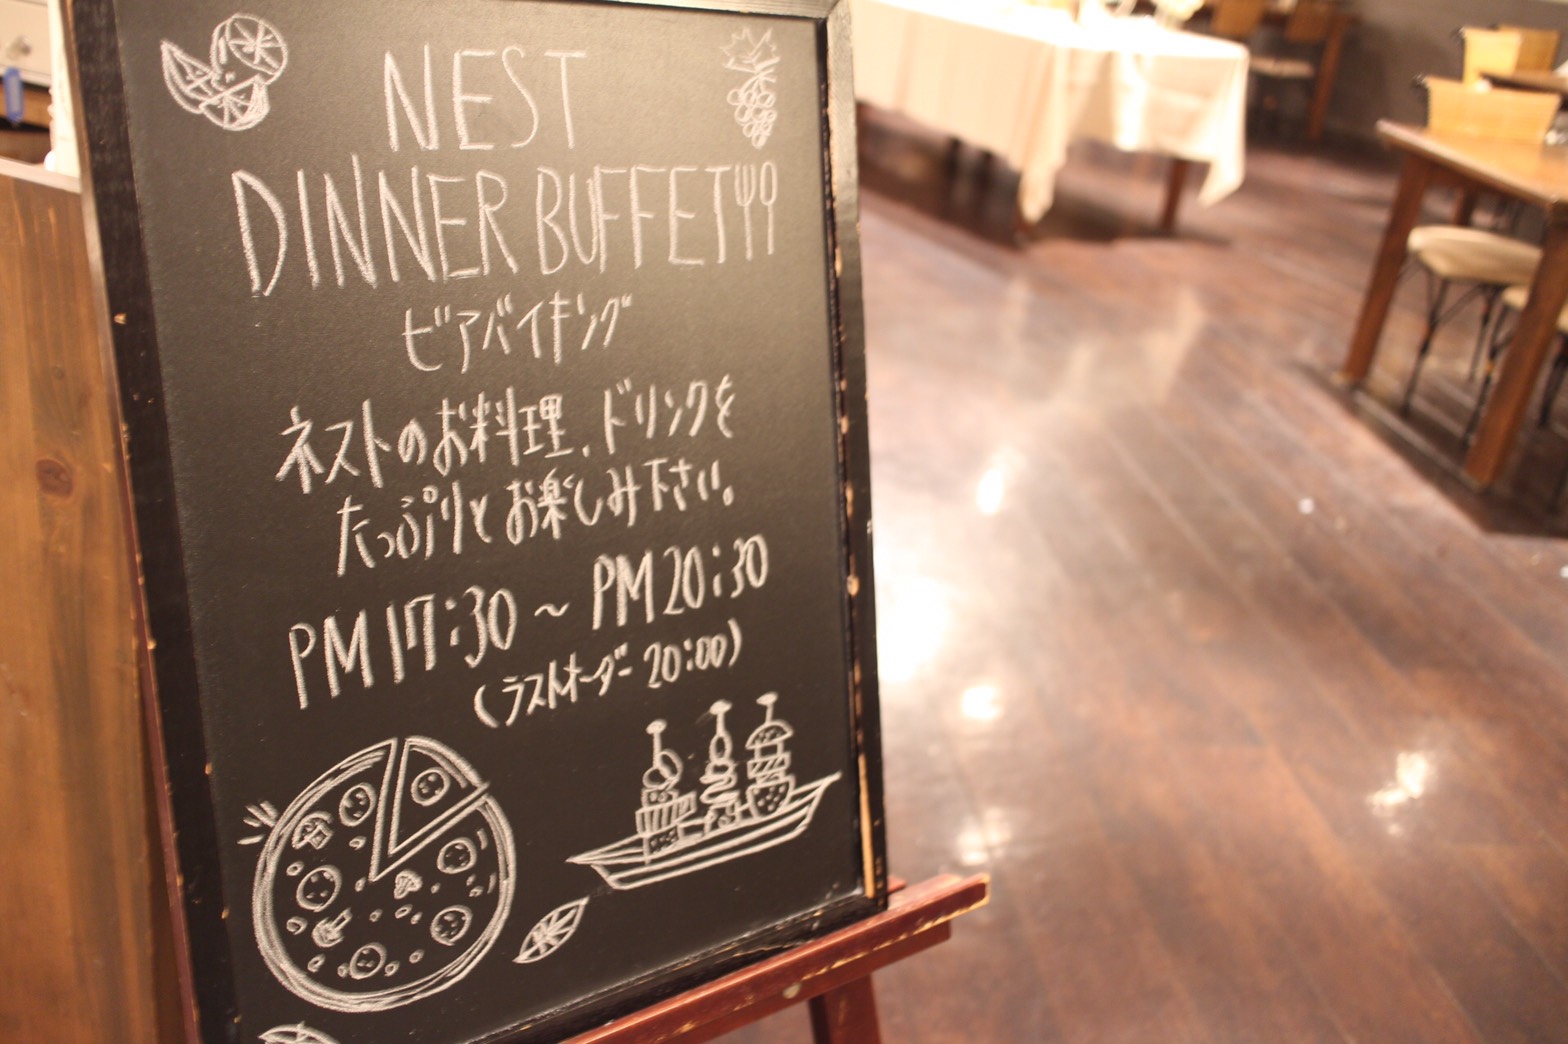 NEST
DINNER BUFFET
ビアバイキング
ネストのお料理、ドリンクを
たっぷりとお楽しみ下さい。
PM 17:30 〜 PM 20:30
(ラストオーダー 20:00)